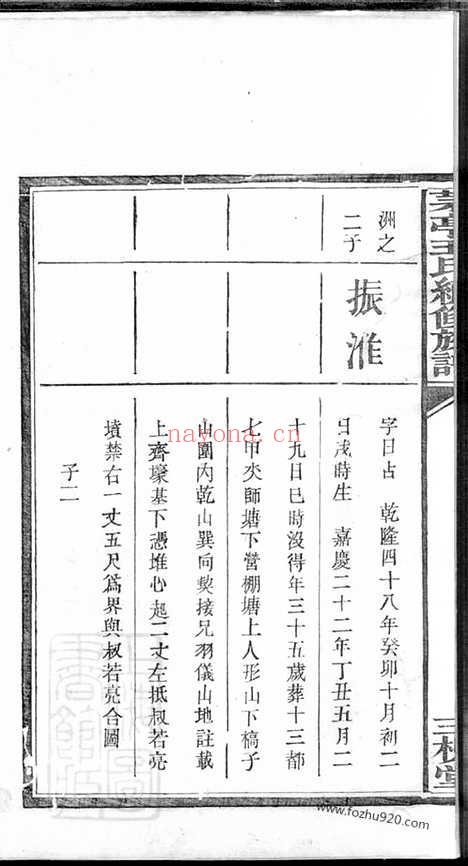 王氏續修族譜
三槐堂
洲之
二子
振淮
字日占 乾隆四十八年癸卯十月初二
日戌時生 嘉慶二十二年丁丑五月二
十九日巳時沒得年三十五歲葬十三都
七甲夾師塘下營棚塘上人形山下槁子
山圍內乾山巽向契接兄羽儀山地註載
上齊壕基下憑堆心起二丈左抵叔若亮
墳禁右一丈五尺爲界與叔若亮合圖
子二
nayona.cn
www.fozhu920.com